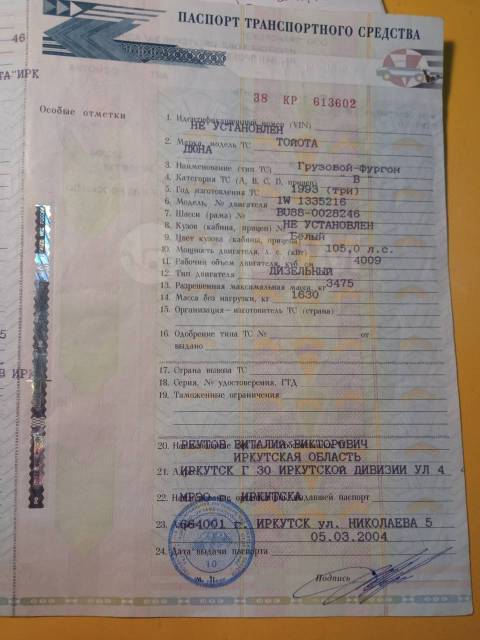 ПАСПОРТ ТРАНСПОРТНОГО СРЕДСТВА
46
ТА"ИРК
38 КР 613602
Особые отметки
1. Идентификационный номер (VIN)
НЕ УСТАНОВЛЕН
2. Марка, модель ТС ТОЙОТА
ДЮНА
3. Наименование (тип ТС) Грузовой-фургон
4. Категория ТС (А, В, С, D, прицеп) В
5. Год изготовления ТС 1993 (три)
6. Модель, № двигателя 1W 1335216
7. Шасси (рама) № BU88-0028246
8. Кузов (кабина, прицеп) № НЕ УСТАНОВЛЕН
9. Цвет кузова (кабины, прицепа) Белый
10. Мощность двигателя, л. с. (кВт) 105,0 л.с.
11. Рабочий объем двигателя, куб. см 4009
12. Тип двигателя ДИЗЕЛЬНЫЙ
13. Разрешенная максимальная масса, кг 3475
14. Масса без нагрузки, кг 1630
15. Организация-изготовитель ТС (страна)
16. Одобрение типа ТС № от
выдано
17. Страна вывоза ТС
18. Серия, № удостоверения, ГТД
19. Таможенные ограничения
В ИРК
20. РЕУТОВ ВИТАЛИЙ ВИКТОРОВИЧ
ИРКУТСКАЯ ОБЛАСТЬ
21. ИРКУТСК Г 30 ИРКУТСКОЙ ДИВИЗИИ УЛ 4 4
22. МРЭО г. ИРКУТСКА выдавшей паспорт
23. 664001 г. ИРКУТСК ул. НИКОЛАЕВА 5
05.03.2004
24. Дата выдачи паспорта
10
М. П.
Подпись